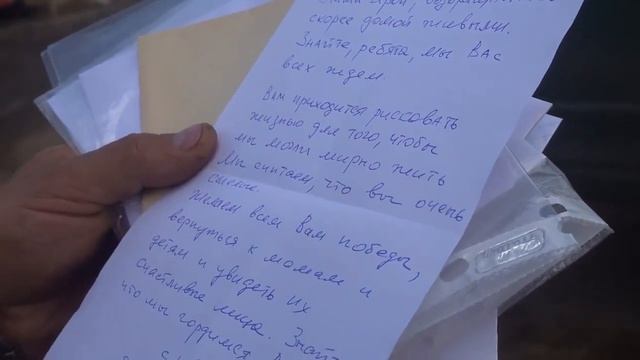 скорее домой живыми.
Знайте, ребята, мы Вас
всех ждем.
Вам приходится рисковать
жизнью для того, чтобы
мы могли мирно жить
Мы считаем, что вы очень
смелые.
Желаем всем Вам победы,
вернуться к мамам и
детям и увидеть их
счастливые лица. Знайте
что мы гордимся